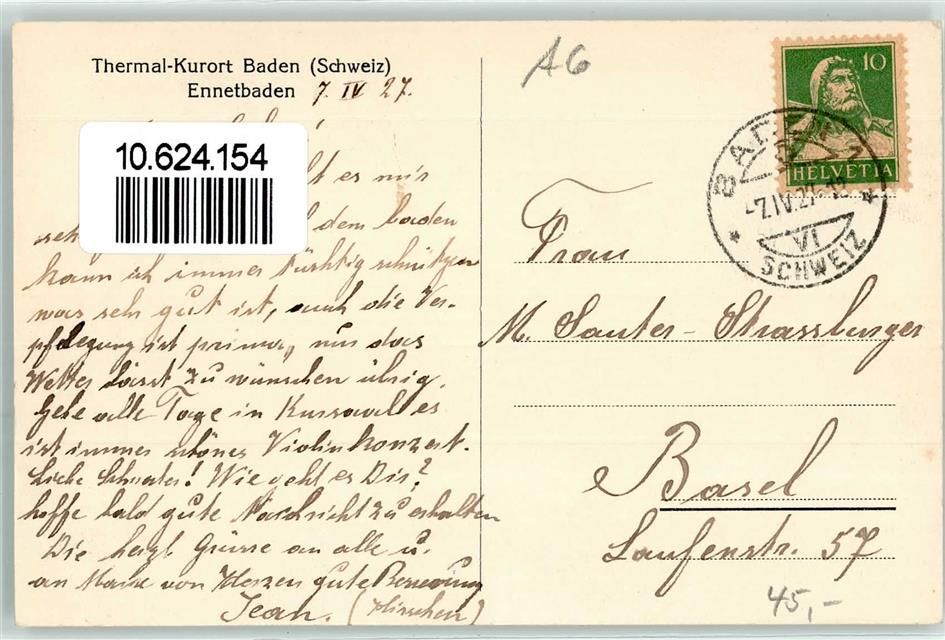 Thermal-Kurort Baden (Schweiz)
Ennetbaden 7 IV 27.
10.624.154
es mir
dem baden
kann ich immer tüchtig schwitzen
was sehr gut ist, auch die Ver-
pflegung ist prima, nur das
Wetter lässt zu wünschen übrig.
Gehe alle Tage in Kursaal es
ist immer schönes Violinkonzert.
Liebe Schwester! Wie geht es Dir?
hoffe bald gute Nachricht zu erhalten
Die herzl Grüsse an alle u.
an von Herzen gute
Jean. (Hirschen)
A6
10
HELVETIA
BADEN 1
-7.IV.27
VI
SCHWEIZ
Frau
M. Sauter-Strassburger
Basel
Laufenstr. 57
45,-